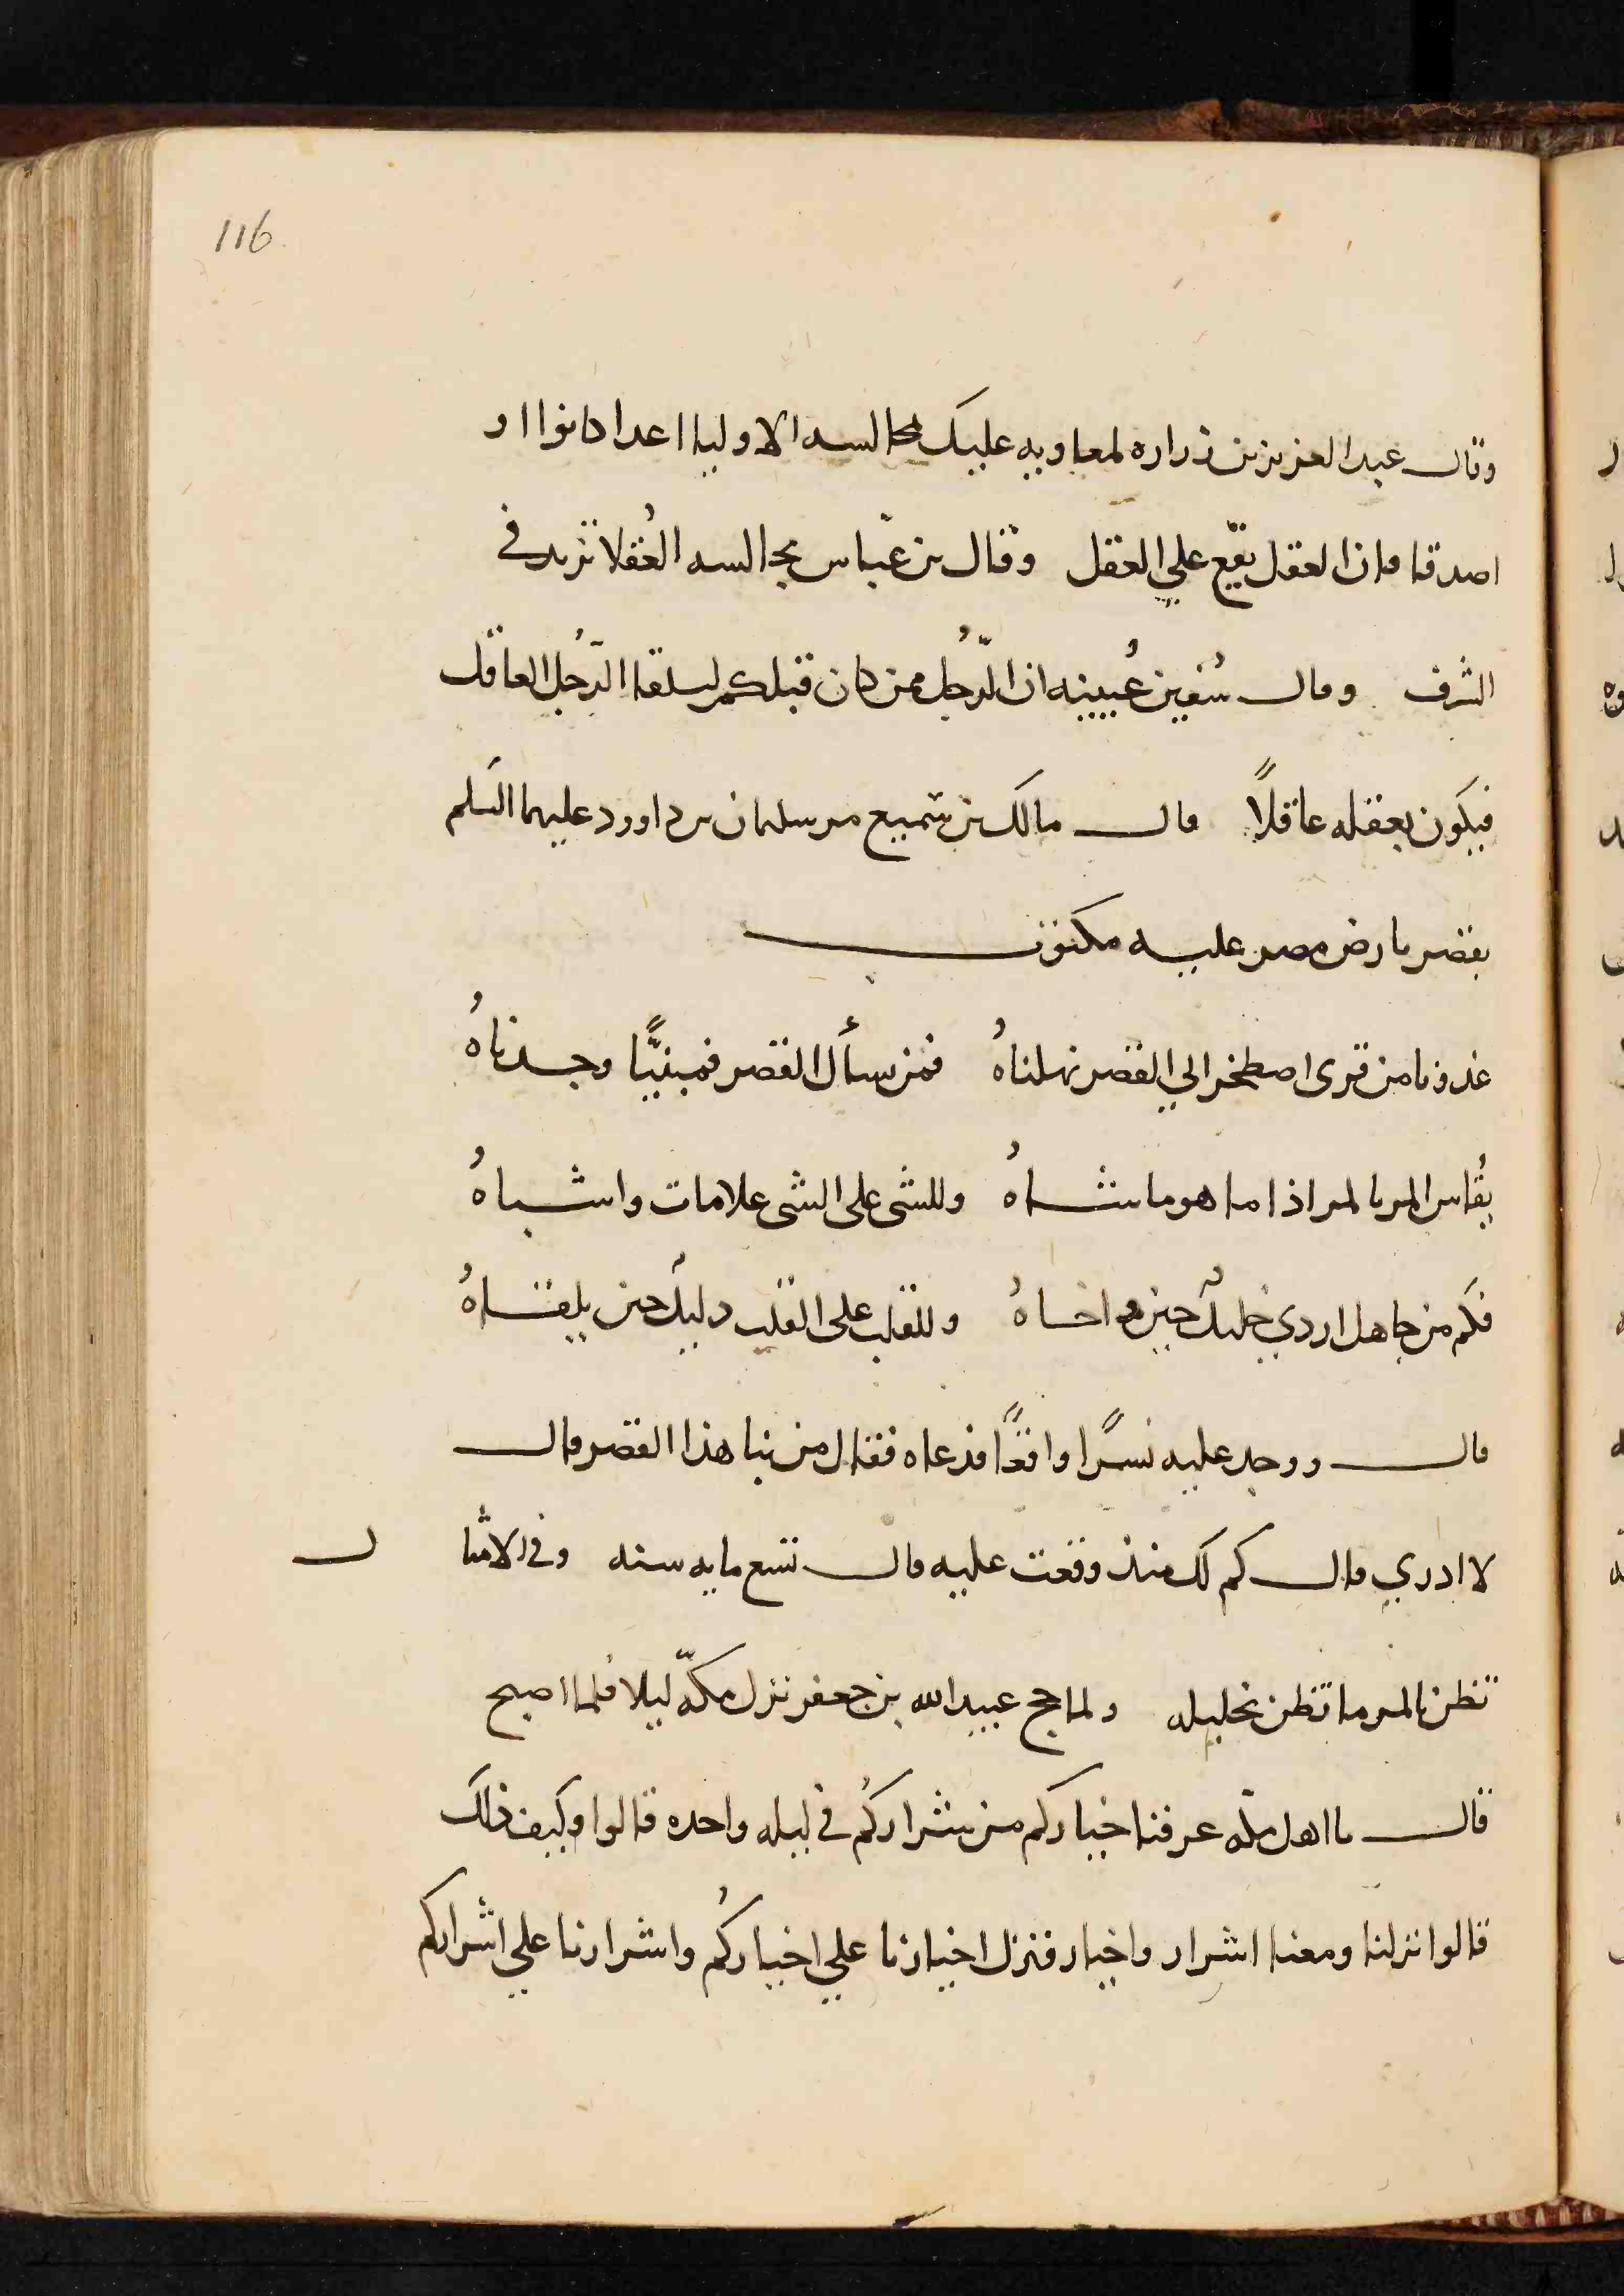 116
وقال عبد العزيز بن زراره لمعاويه عليك بمجالسه الاوليا اعدا كانوا او
اصدقا فان العقل يقع علي العقل وقال بن عباس مجالسه العُقلا تزيد في
الشرف وقال سُفين بن عُيينه ان الرّجُل ممن كان قبلكم ليلقا الرّجُل العاقل
فيكون بعقله عاقلاً قال مالك بن سميع مر سليمان بن داوود عليهما السلم
بقصر بارض مصر عليه مكتوب
غدونا من قرى اصطخر الي القصر نهلناهُ فمن سأل القصر فمبنيًّا وجدناهُ
يُقاس المر بالمر اذا ما هو ما شاهُ وللشى على الشى علامات واشباهُ
فكم من جاهل اردي خليلٌ حين واخاهُ وللقلب على القلب دليل حين يلقاهُ
قال ووجد عليه نسرًا واقعًا فدعاه فقال من بنا هذا القصر قال
لا ادري قال كم لك منذ وقعت عليه قال تسع مايه سنه وفي الامثال
تظن بالمر ما تظن بخليله ولما حج عبيد الله بن جعفر نزل مكّه ليلا فلما اصبح
قال يا اهل مكّه عرفنا خياركم من شراركُم في ليله واحده قالوا وكيف ذلك
قالوا نزلنا ومعنا اشرار واخيار فنزل اخيارنا علي اخياركُم واشرارنا علي اشراركم